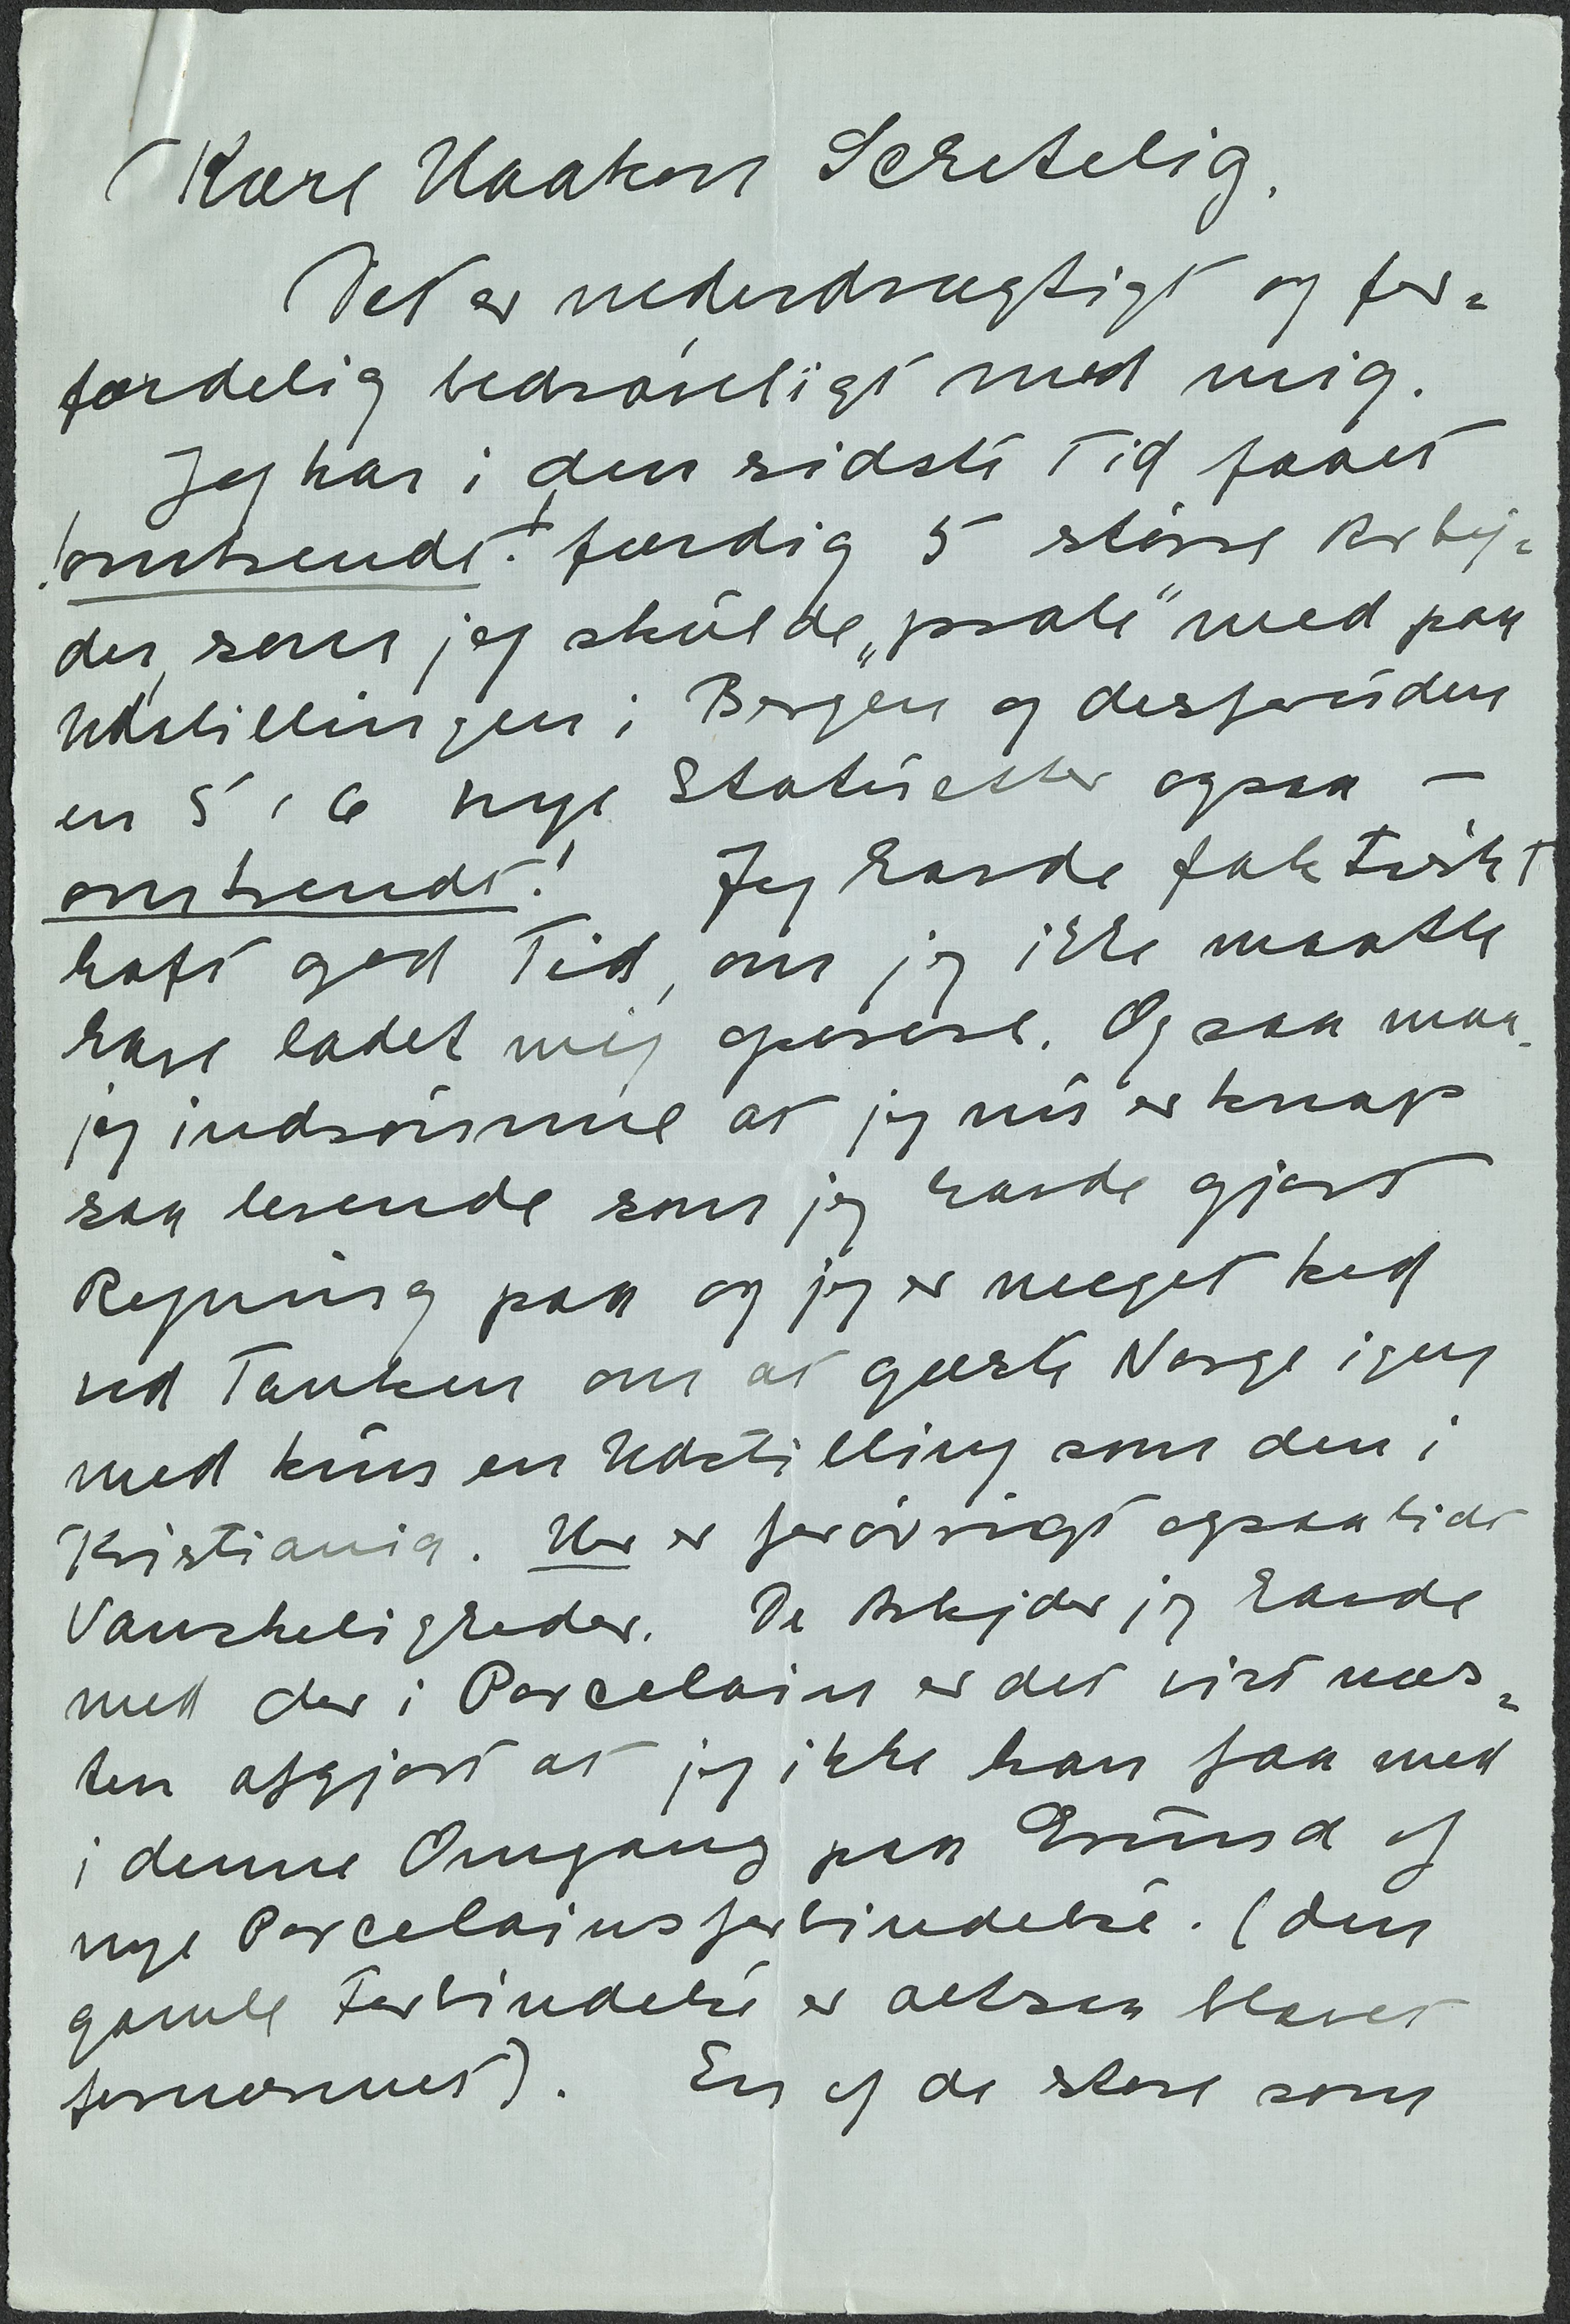 Kære Haakon Schetelig.
Det er nederdrægtigt og for=
færdelig bedrøveligt med mig.
Jeg har i den sidste Tid faaet
!omtrendt! færdig 5 større Arbej=
der, som jeg skulde „prale" med paa
Udstillingen i Bergen og desforuden
en 5 , 6 nye Statuetter ogsaa —
omtrendt! Jeg havde faktiskt
haft god Tid, om jeg ikke maatte
have ladet mig operere. Og saa maa
jeg indrømme at jeg nu er knap
saa levende som jeg havde gjort
Regning paa og jeg er meget ked
ved Tanken om at gæste Norge igen
med kun en Udstilling som den i
Kristiania. Her er forøvrigt ogsaa lidt
Vanskeligheder. De Arbejder jeg havde
med der i Porcelain er det vist næs=
ten afgjort at jeg ikke kan faa med
i denne Omgang paa Grund af
nye Porcelainsforbindelse. (den
gamle Forbindelse er altsaa blevet
fornærmet). En af de store som